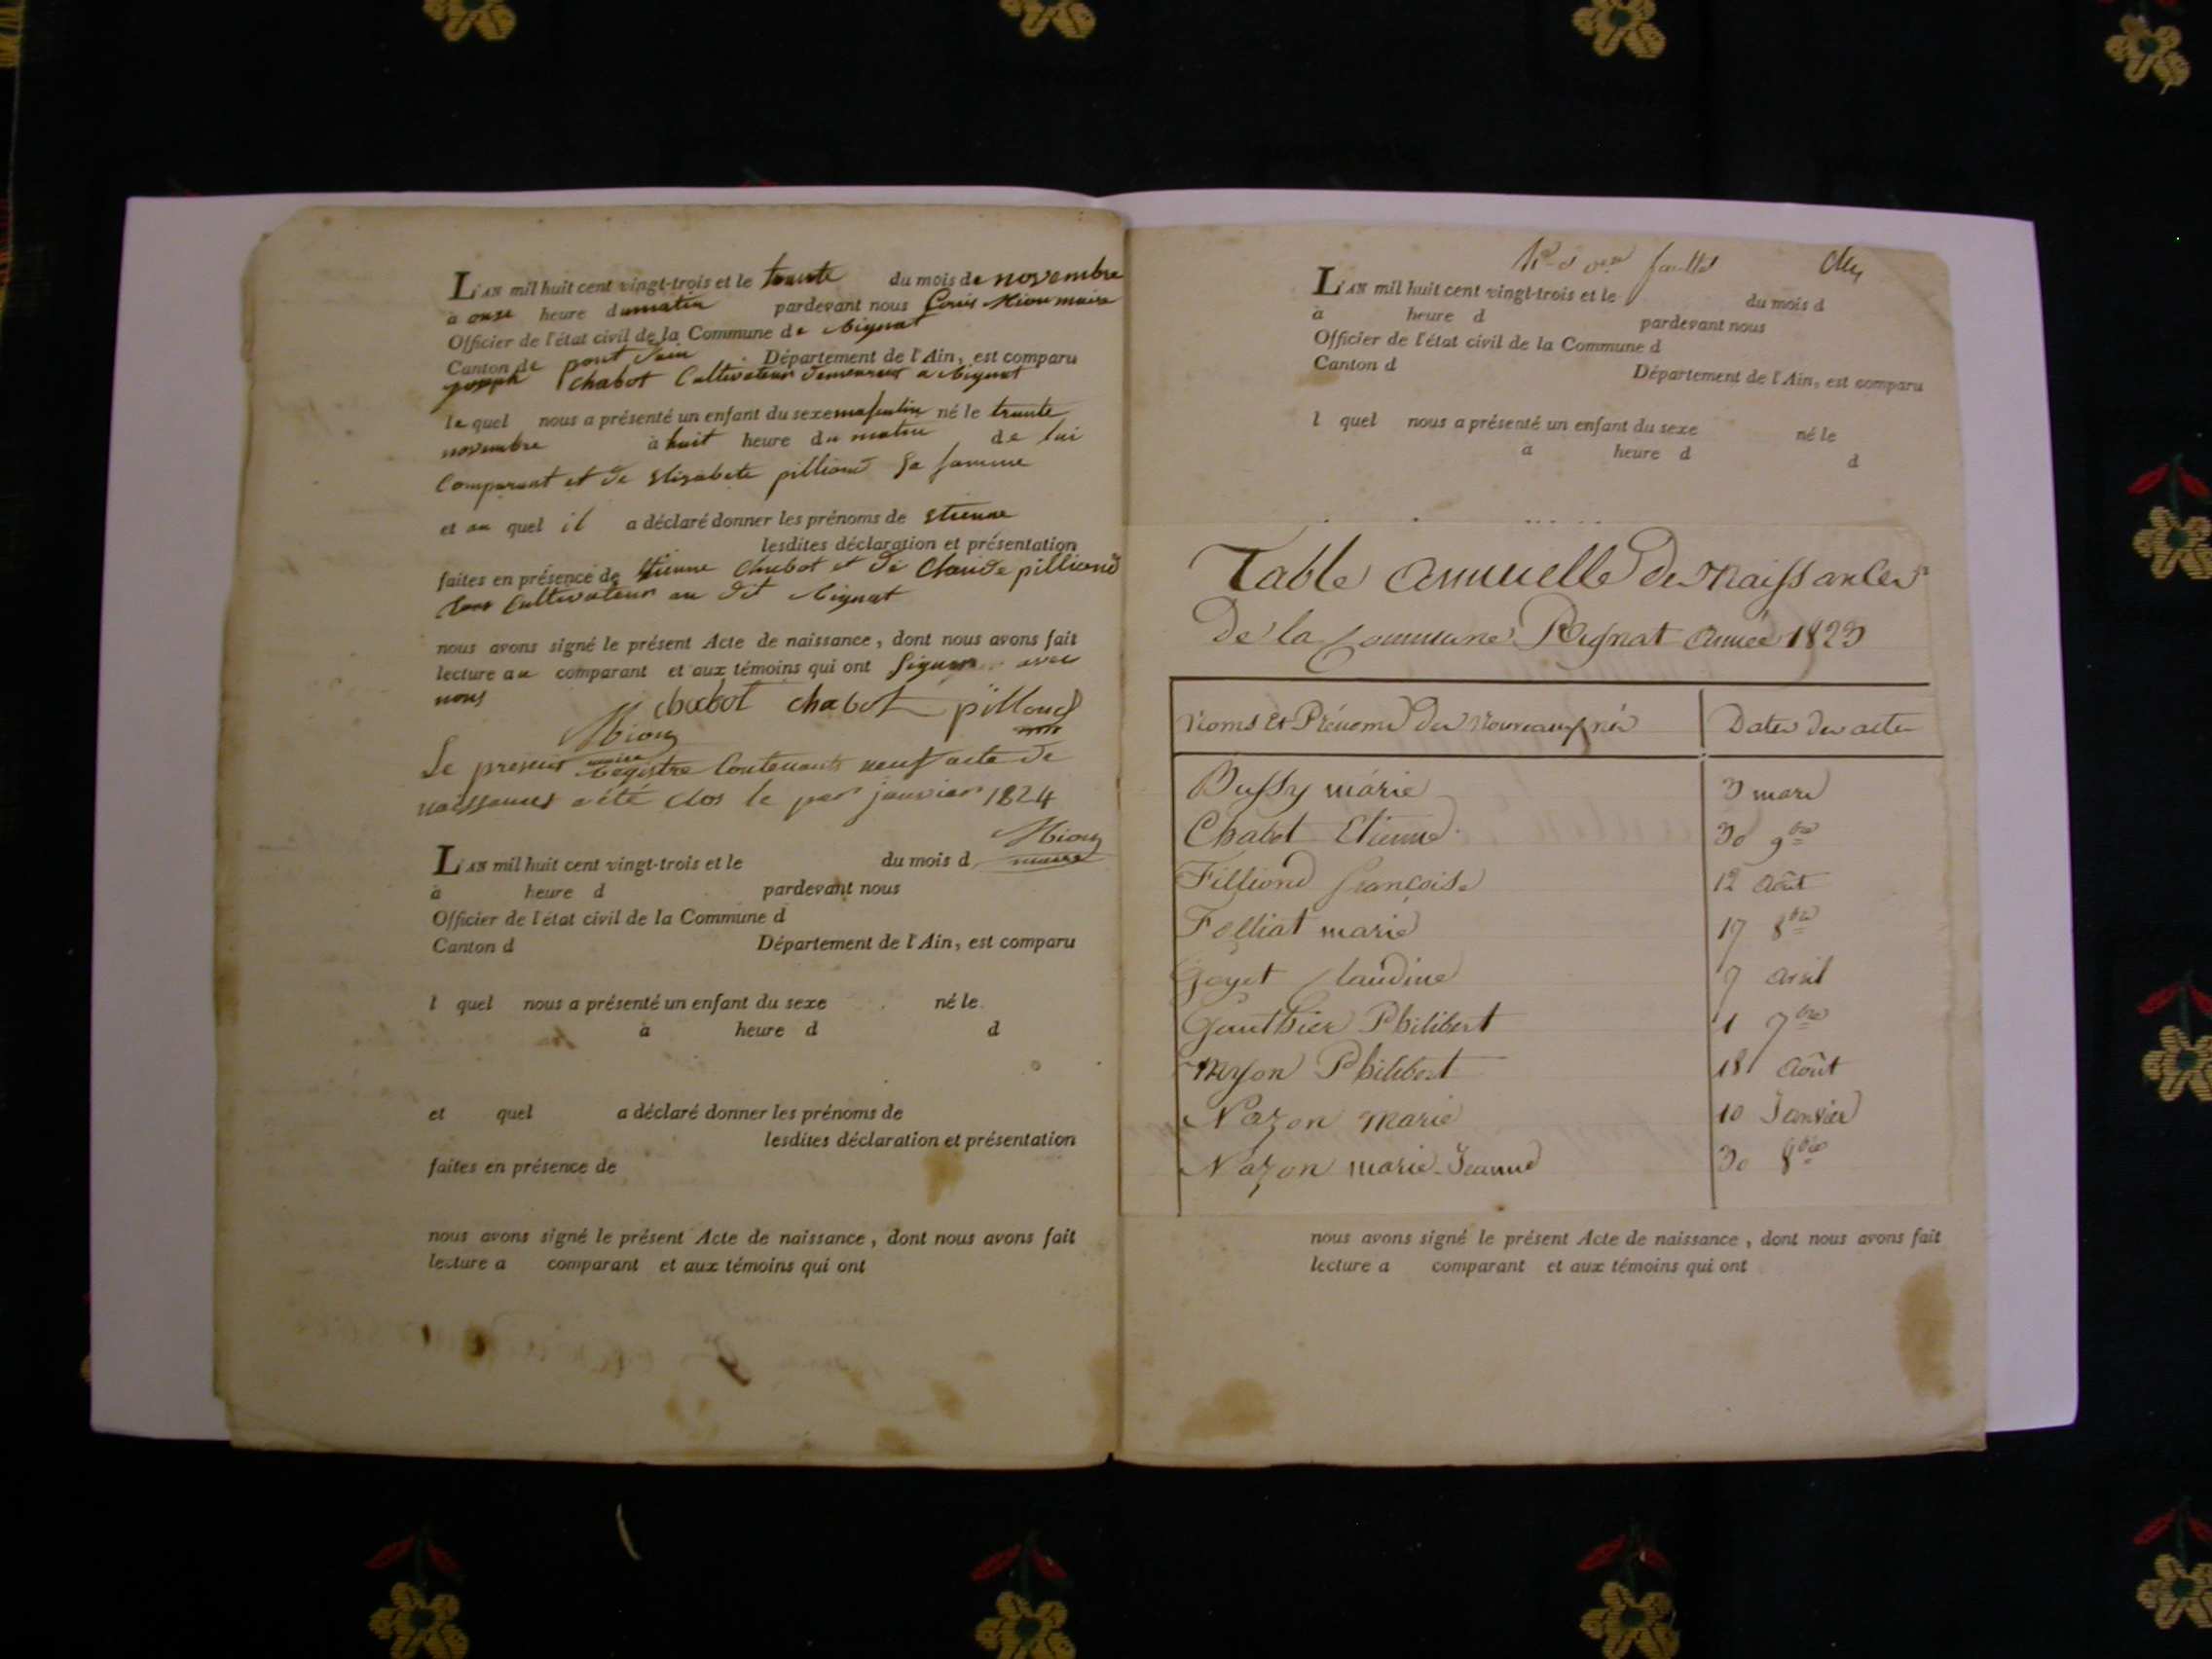 L'AN mil huit cent vingt-trois et le trente du mois de novembre
à onze heure du matin pardevant nous Louis Mion maire
Officier de l'état civil de la Commune de Rignat
Canton de pont d'ain Département de l'Ain, est comparu
joseph chabot Cultivateur demeurant a Rignat
le quel nous a présenté un enfant du sexe masculin né le trente
novembre à huit heure du matin de lui
Comparant et de Elizabete pilliond Sa famme
et au quel il a déclaré donner les prénoms de Etienne
lesdites déclaration et présentation
faites en présence de Etienne Chabot et de Claude pilliond
tous Cultivateur au dit Rignat
nous avons signé le présent Acte de naissance, dont nous avons fait
lecture au comparant et aux témoins qui ont Signer avec
nous
chabot chabot pilloud
Mion
maire
Le present Registre Contenant neuf acte de
naissances a été clos le per janvier 1824
Mion
maire
L'AN mil huit cent vingt-trois et le du mois d
à heure d pardevant nous
Officier de l'état civil de la Commune d
Canton d Département de l'Ain, est comparu
l quel nous a présenté un enfant du sexe né le
à heure d d
et quel a déclaré donner les prénoms de
lesdites déclaration et présentation
faites en présence de
nous avons signé le présent Acte de naissance, dont nous avons fait
lecture a comparant et aux témoins qui ont
L'AN mil huit cent vingt-trois et le du mois d
à heure d pardevant nous
Officier de l'état civil de la Commune d
Canton d Département de l'Ain, est comparu
l quel nous a présenté un enfant du sexe né le
à heure d d
Table Annuelle des Naissances
De la Commune Rignat année 1823
Noms et Prénoms des Nouveaux nés Dates des actes
Bussy marie 3 mars
Chabot Etienne 30 9bre
Filliond françoise 12 Août
Folliat marie 17 8bre
Goyet Claudine 9 avril
Gauthier Philibert 1 7bre
Myon Philibert 18 Août
Nazon Marie 10 Janvier
Nazon marie-Jeanne 30 8bre
nous avons signé le présent Acte de naissance, dont nous avons fait
lecture a comparant et aux témoins qui ont